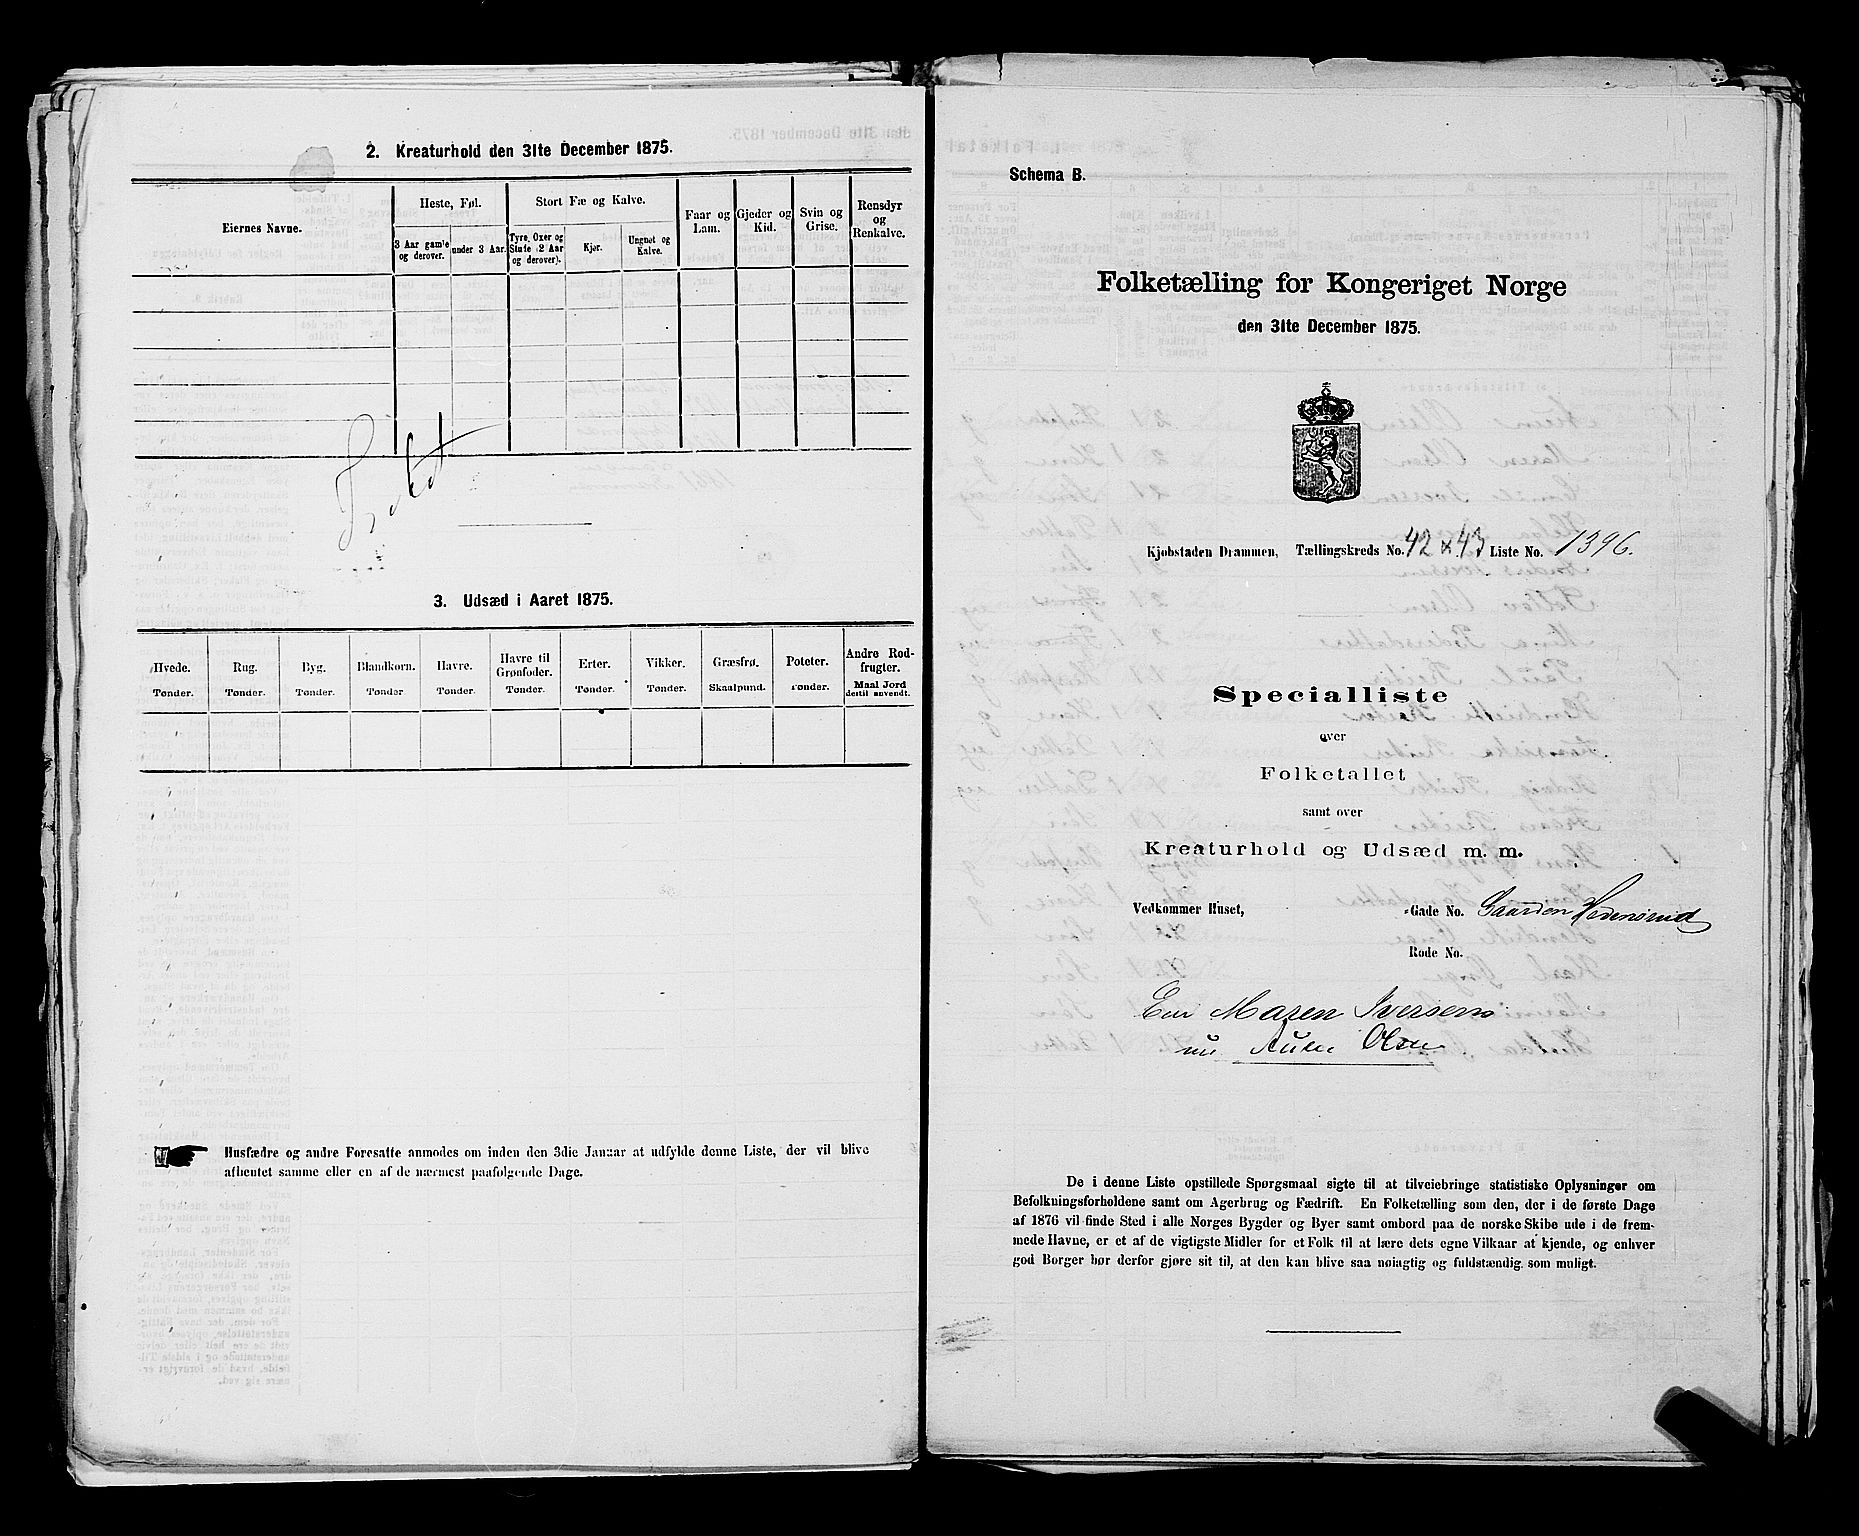 2. Kreaturhold den 31te December 1875.
Eiernes Navne.
Heste, Føl.
3 Aar gamle og derover.
under 3 Aar.
Stort Fæ og Kalve.
Tyre, Oxer og Stude (2 Aar og derover).
Kjør.
Ungnøt og Kalve.
Faar og Lam.
Gjeder og Kid.
Svin og Grise.
Rensdyr og Renkalve.
3. Udsæd i Aaret 1875.
Hvede. Tønder.
Rug. Tønder.
Byg. Tønder.
Blandkorn. Tønder
Havre. Tønder.
Havre til Grønfoder. Tønder.
Erter. Tønder.
Vikker. Tønder.
Græsfrø. Skaalpund.
Poteter. Tønder.
Andre Rodfrugter. Maal Jord dertil anvendt.
Husfædre og andre Foresatte anmodes om inden den 3die Januar at udfylde denne Liste, der vil blive
afhentet samme eller en af de nærmest paafølgende Dage.
Schema B.
Folketælling for Kongeriget Norge
den 31te December 1875.
Kjøbstaden Drammen, Tællingskreds No. 42 x 43 Liste No. 1396.
Specialliste
over
Folketallet
samt over
Kreaturhold og Udsæd m. m.
Vedkommer Huset, -Gade No. Gaarden Hedensrud
Rode No.
Eier Maren Iversen
nu Olsen
De i denne Liste opstillede Spørgsmaal sigte til at tilveiebringe statistiske Oplysninger om
Befolkningsforholdene samt om Agerbrug og Fædrift. En Folketælling som den, der i de første Dage
af 1876 vil finde Sted i alle Norges Bygder og Byer samt ombord paa de norske Skibe ude i de frem-
mede Havne, er et af de vigtigste Midler for et Folk til at lære dets egne Vilkaar at kjende, og enhver
god Borger bør derfor gjøre sit til, at den kan blive saa nøiagtig og fuldstændig som muligt.